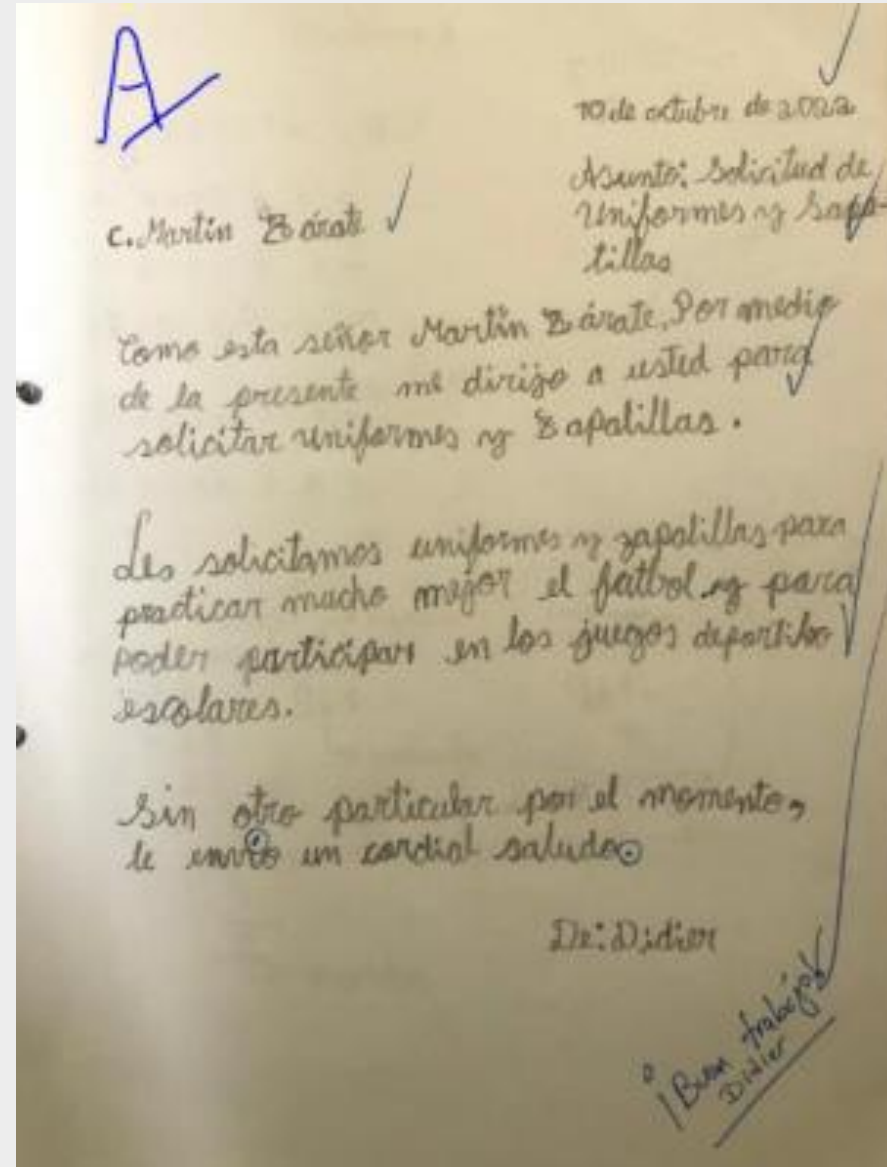 A
10 de octubre de 2022
Asunto: Solicitud de
Uniformes y Zapa-
tillas
C. Martin Zárate
Como esta señor Martín Zárate, Por medio
de la presente me dirijo a usted para
solicitar uniformes y Zapatillas.
Les solicitamos uniformes y zapatillas para
practicar mucho mejor el futbol y para
poder participar en los juegos deportibo
escolares.
Sin otro particular por el momento,
le envío un cordial saludo.
De: Didier
¡Buen trabajo!
Didier